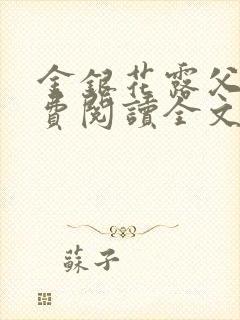 金銀花露父
費閱讀全文
蘇子